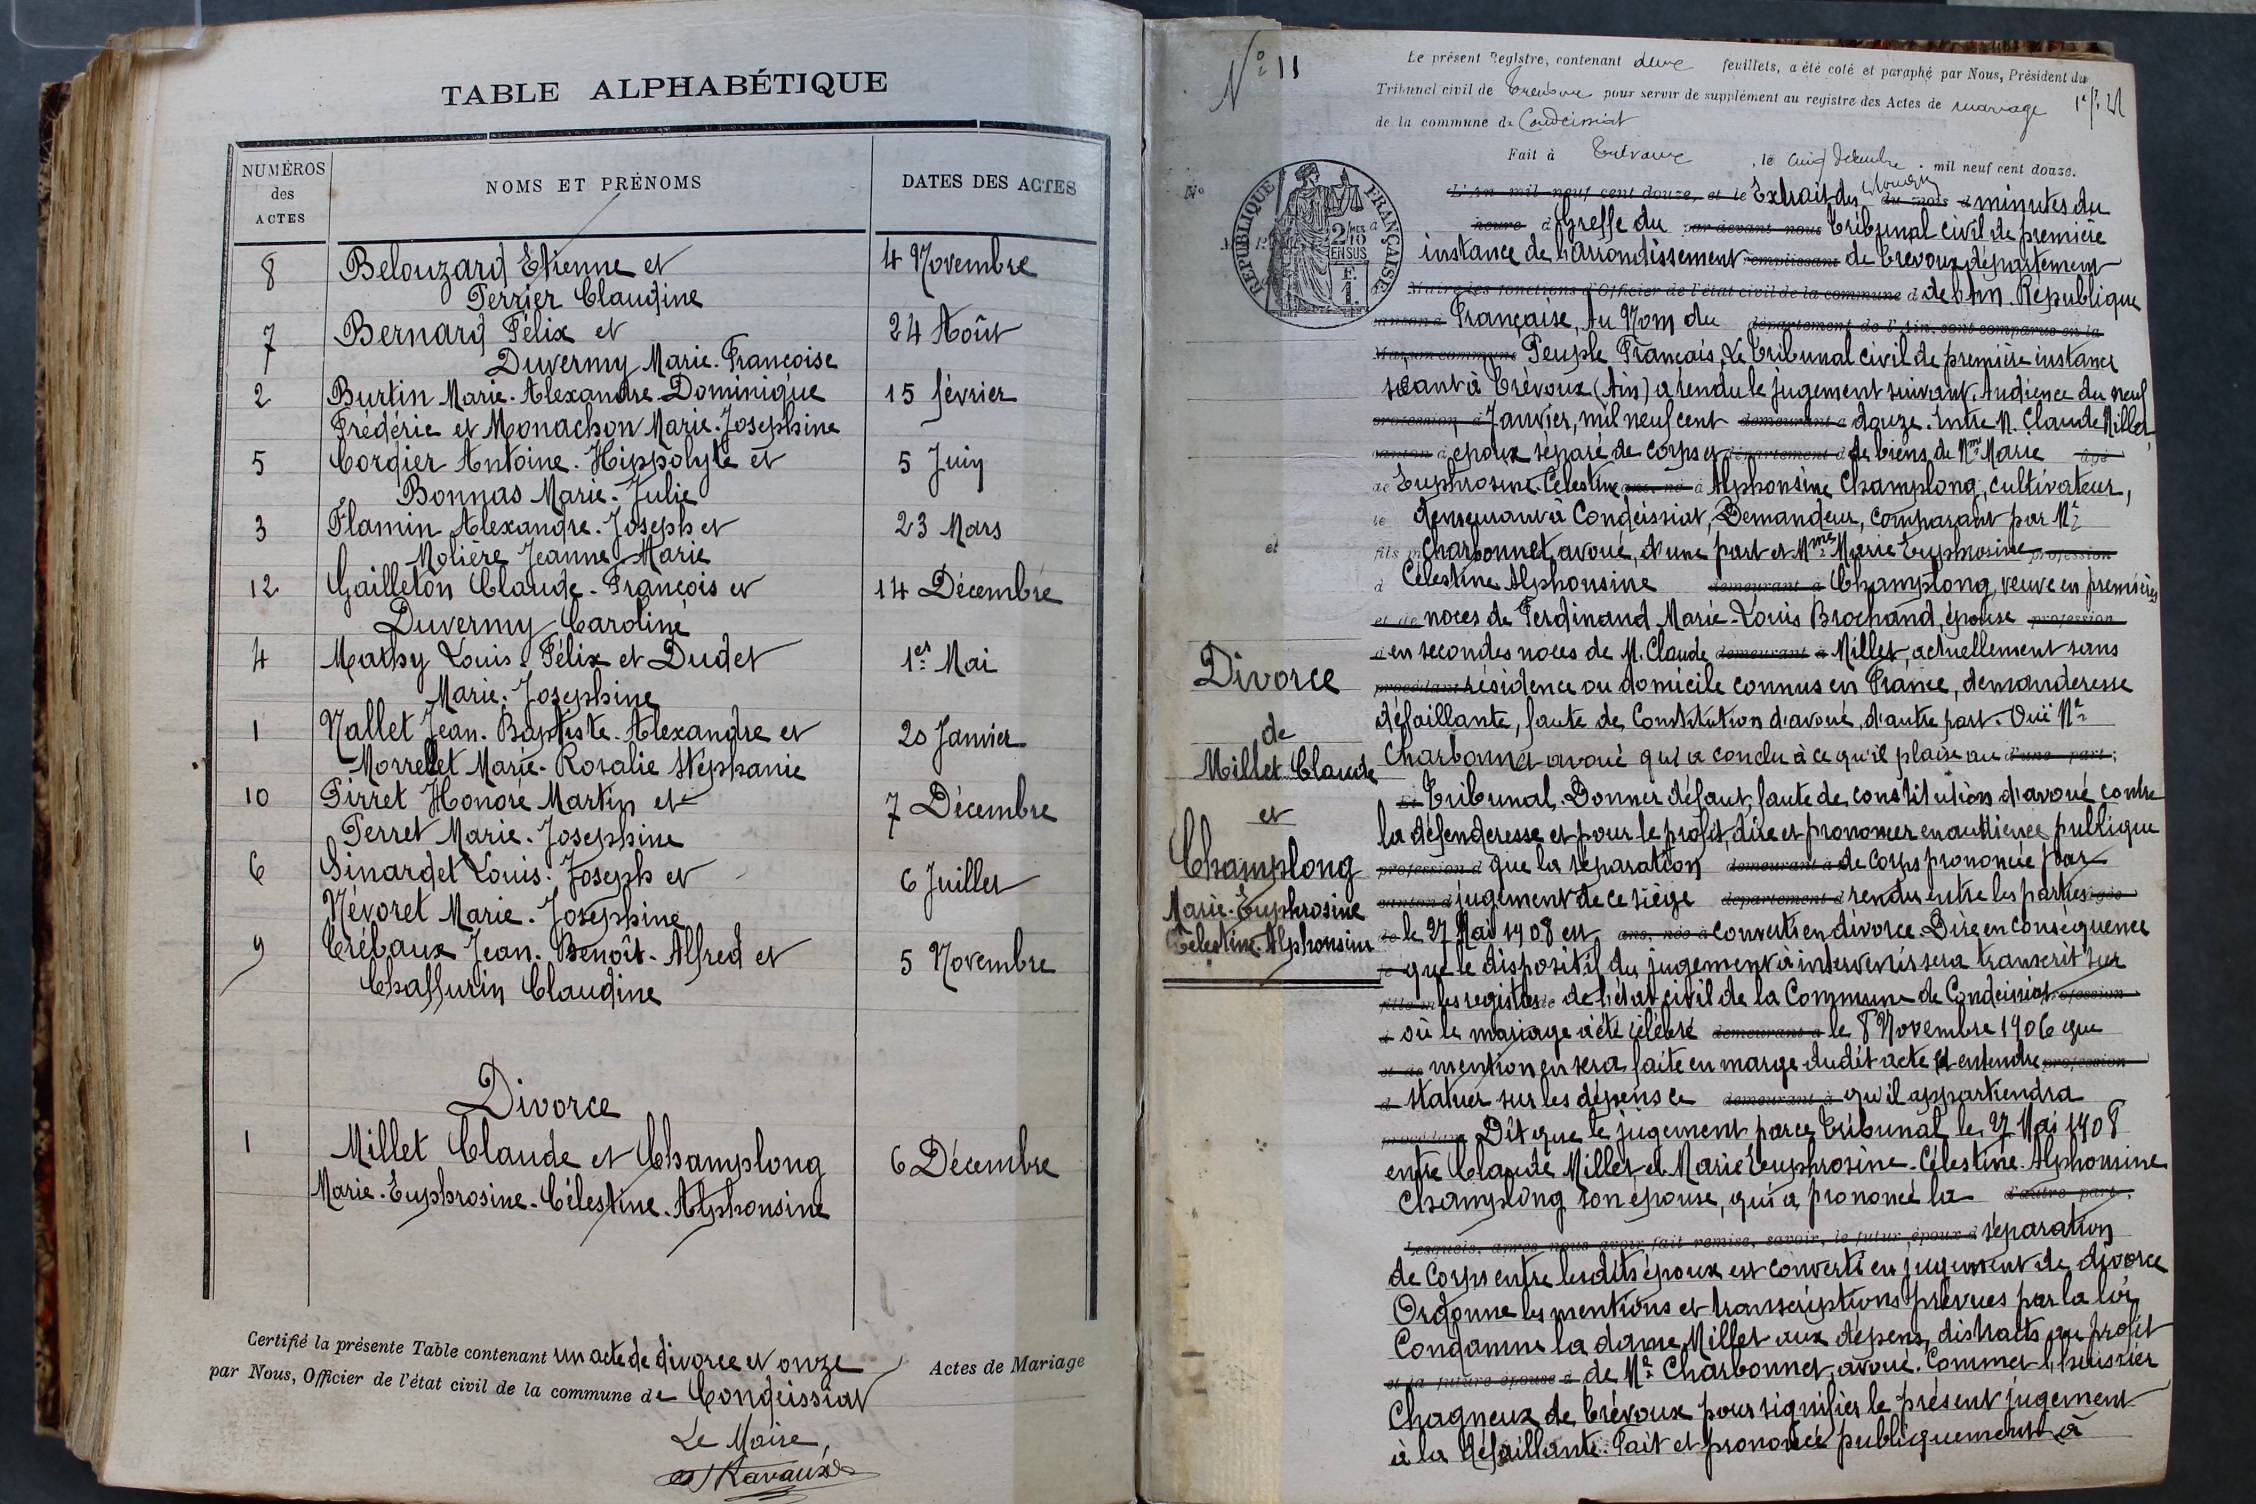 TABLE ALPHABÉTIQUE
NUMÉROS des ACTES
NOMS ET PRÉNOMS
DATES DES ACTES
8 Belouzard Etienne et 4 Novembre
Perrier Claudine
7 Bernard Félix et 24 Août
Duvermy Marie-Françoise
2 Burtin Marie-Alexandre-Dominique 15 février
Frédéric et Monachon Marie-Josephine
5 Cordier Antoine-Hippolyte et 5 Juin
Bonnas Marie-Julie
3 Flamin Alexandre-Joseph et 23 Mars
Molière Jeanne-Marie
12 Gailleton Claude-François et 14 Décembre
Duvermy Caroline
4 Mathy Louis-Félix et Dudet 1er Mai
Marie-Josephine
1 Nallet Jean-Baptiste-Alexandre et 20 Janvier
Morrellet Marie-Rosalie Stéphanie
10 Pirret Honoré Martin et 7 Décembre
Perret Marie-Josephine
6 Sinardet Louis-Joseph et 6 Juillet
Névoret Marie-Josephine
9 Trébaux Jean-Benoît-Alfred et 5 Novembre
Chaffurin Claudine
Divorce
1 Millet Claude et Champlong 6 Décembre
Marie-Euphrosine-Célestine-Alphonsine
Certifié la présente Table contenant un acte de divorce et onze Actes de Mariage
par Nous, Officier de l'état civil de la commune de Condeissiat
Le Maire,
Ravaux
N° 11
Le présent Registre, contenant deux feuillets, a été coté et paraphé par Nous, Président du
Tribunal civil de Trévoux pour servir de supplément au registre des Actes de mariage
de la commune de Condeissiat
Fait à Trévoux, le cinq décembre mil neuf cent douze.
RÉPUBLIQUE FRANÇAISE
2/10 EN SUS
Divorce
de
Millet Claude
et
Champlong
Marie-Euphrosine
Célestine-Alphonsine
L'An mil neuf cent douze, et le Extrait des du mois d minutes du
heure d Greffe du par devant nous Tribunal civil de première
instance de l'Arrondissement remplissant de Trévoux département
Maire les fonctions d'Officier de l'état civil de la commune d de l'Ain. République
Française, Au Nom du département de l'Ain, sont comparus en la
Maison commune Peuple Français. Le Tribunal civil de première instance
séant à Trévoux (Ain) a rendu le jugement suivant. Audience du neuf
profession d Janvier, mil neuf cent demeurant à douze. Entre M. Claude Millet,
canton d époux séparé de corps et département d de biens, de Mme Marie âgé
de Euphrosine Célestine ans, né à Alphonsine Champlong, cultivateur,
le demeurant à Condeissiat, Demandeur, comparant par Me
fils m Charbonnet, avoué, d'une part et Mme Marie Euphrosine profession
d Célestine Alphonsine demeurant à Champlong, veuve en premières
et de noces de Ferdinand Marie-Louis Brochand, épouse profession
d en secondes noces de M. Claude demeurant à Millet, actuellement sans
procédant résidence ou domicile connus en France, demanderesse
défaillante, faute de Constitution d'avoué, d'autre part. Ouï Me
Charbonnet avoué qui a conclu à ce qu'il plaise au d'une part;
Et Tribunal. Donner défaut, faute de constitution d'avoué contre
la défenderesse et pour le profit, dire et prononcer en audience publique
profession d que la séparation demeurant à de corps prononcée par
canton d jugement de ce siège département d rendu entre les parties âgée
de le 27 Mai 1908 est ans, née à converti en divorce. Dire en conséquence
le que le dispositif du jugement à intervenir sera transcrit sur
fille m les registres de de l'état civil de la Commune de Condeissiat profession
d où le mariage a été célébré demeurant à le 8 Novembre 1906 que
et de mention en sera faite en marge dudit acte et entendre profession
d statuer sur les dépens ce demeurant à qu'il appartiendra
procédant Dit que le jugement par ce Tribunal le 27 Mai 1908
entre Claude Millet et Marie Euphrosine-Célestine-Alphonsine
Champlong son épouse, qui a prononcé la d'autre part.
Lesquels, après nous avoir fait remise, savoir, le futur époux d séparation
de Corps entre lesdits époux est converti en jugement de divorce
Ordonne les mentions et transcriptions prévues par la loi,
Condamne la dame Millet aux dépens, distraits au profit
et la future épouse d de Me Charbonnet, avoué. Commet l'huissier
Chagneux de Trévoux pour signifier le présent jugement
à la défaillante. Fait et prononcé publiquement à